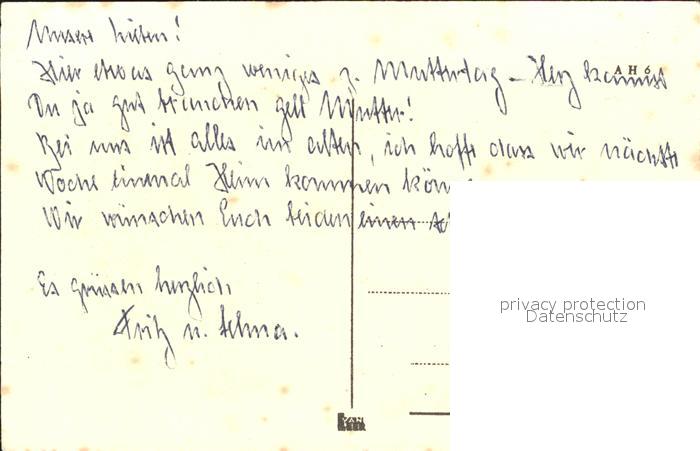 Unsere lieben!
Hier etwas ganz weniges z. Muttertag – Herz kannst
A H 6
Du ja gut brauchen gell Mutter!
Bei uns ist alles im alten, ich hoffe dass wir nächste
Woche einmal Heim kommen kön
Wir wünschen Euch beiden einen
Es grüssen herzlich
Fritz u. Selma.
privacy protection
Datenschutz